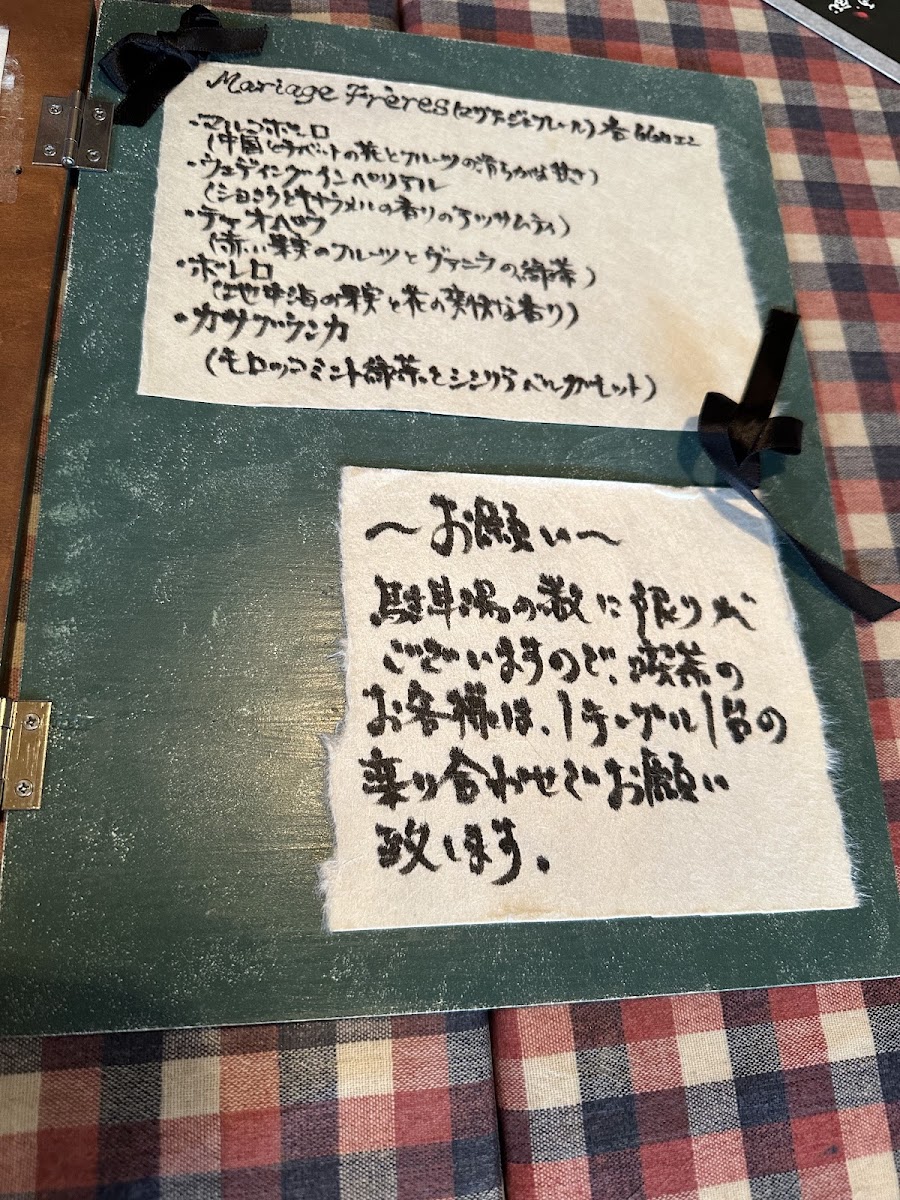 Mariage Frères(マリアージュフレール)各
・マルコポーロ
(中国とチベットの花とフルーツの滑らかな甘さ)
・ウェディングインペリアル
(ショコラとキャラメルの香りのアッサムティ)
・テオペラ
(赤い果実のフルーツとヴァニラの緑茶)
・ボレロ
(地中海の果実と花の爽快な香り)
・カサブランカ
(モロッコミント緑茶とシンプラベルガモット)
〜お願い〜
駐車場の数に限りが
ございますので、喫茶の
お客様は、1テーブル1台の
乗り合わせでお願い
致します。